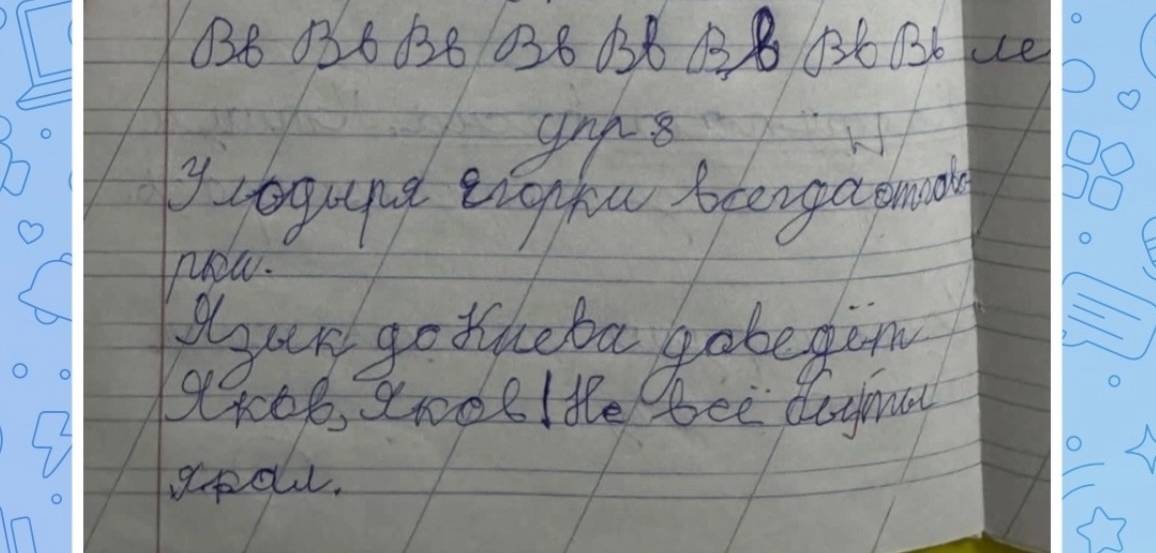 Вв Вв Вв Вв Вв Вв Вв Вв ле
упр 8
У лодыря Егорки всегда отгово-
рки.
Язык до Киева доведёт
Яков, Яков! Не всё бы ты
якал.